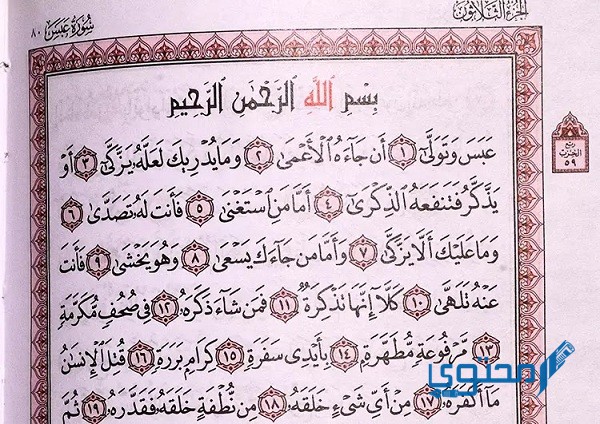 الجزء الثلاثون
سورة عبس ٨٠
بِسْمِ ٱللَّهِ ٱلرَّحْمَٰنِ ٱلرَّحِيمِ
عَبَسَ وَتَوَلَّىٰٓ ١ أَن جَآءَهُ ٱلْأَعْمَىٰ ٢ وَمَا يُدْرِيكَ لَعَلَّهُۥ يَزَّكَّىٰٓ ٣ أَوْ
يَذَّكَّرُ فَتَنفَعَهُ ٱلذِّكْرَىٰٓ ٤ أَمَّا مَنِ ٱسْتَغْنَىٰ ٥ فَأَنتَ لَهُۥ تَصَدَّىٰ ٦
وَمَا عَلَيْكَ أَلَّا يَزَّكَّىٰ ٧ وَأَمَّا مَن جَآءَكَ يَسْعَىٰ ٨ وَهُوَ يَخْشَىٰ ٩ فَأَنتَ
عَنْهُ تَلَهَّىٰ ١٠ كَلَّآ إِنَّهَا تَذْكِرَةٌ ١١ فَمَن شَآءَ ذَكَرَهُۥ ١٢ فِى صُحُفٍ مُّكَرَّمَةٍ
١٣ مَّرْفُوعَةٍ مُّطَهَّرَةٍۭ ١٤ بِأَيْدِى سَفَرَةٍ ١٥ كِرَامٍۭ بَرَرَةٍ ١٦ قُتِلَ ٱلْإِنسَٰنُ
مَآ أَكْفَرَهُۥ ١٧ مِنْ أَىِّ شَىْءٍ خَلَقَهُۥ ١٨ مِن نُّطْفَةٍ خَلَقَهُۥ فَقَدَّرَهُۥ ١٩ ثُمَّ
ربع
الحزب
٥٩
محتوى